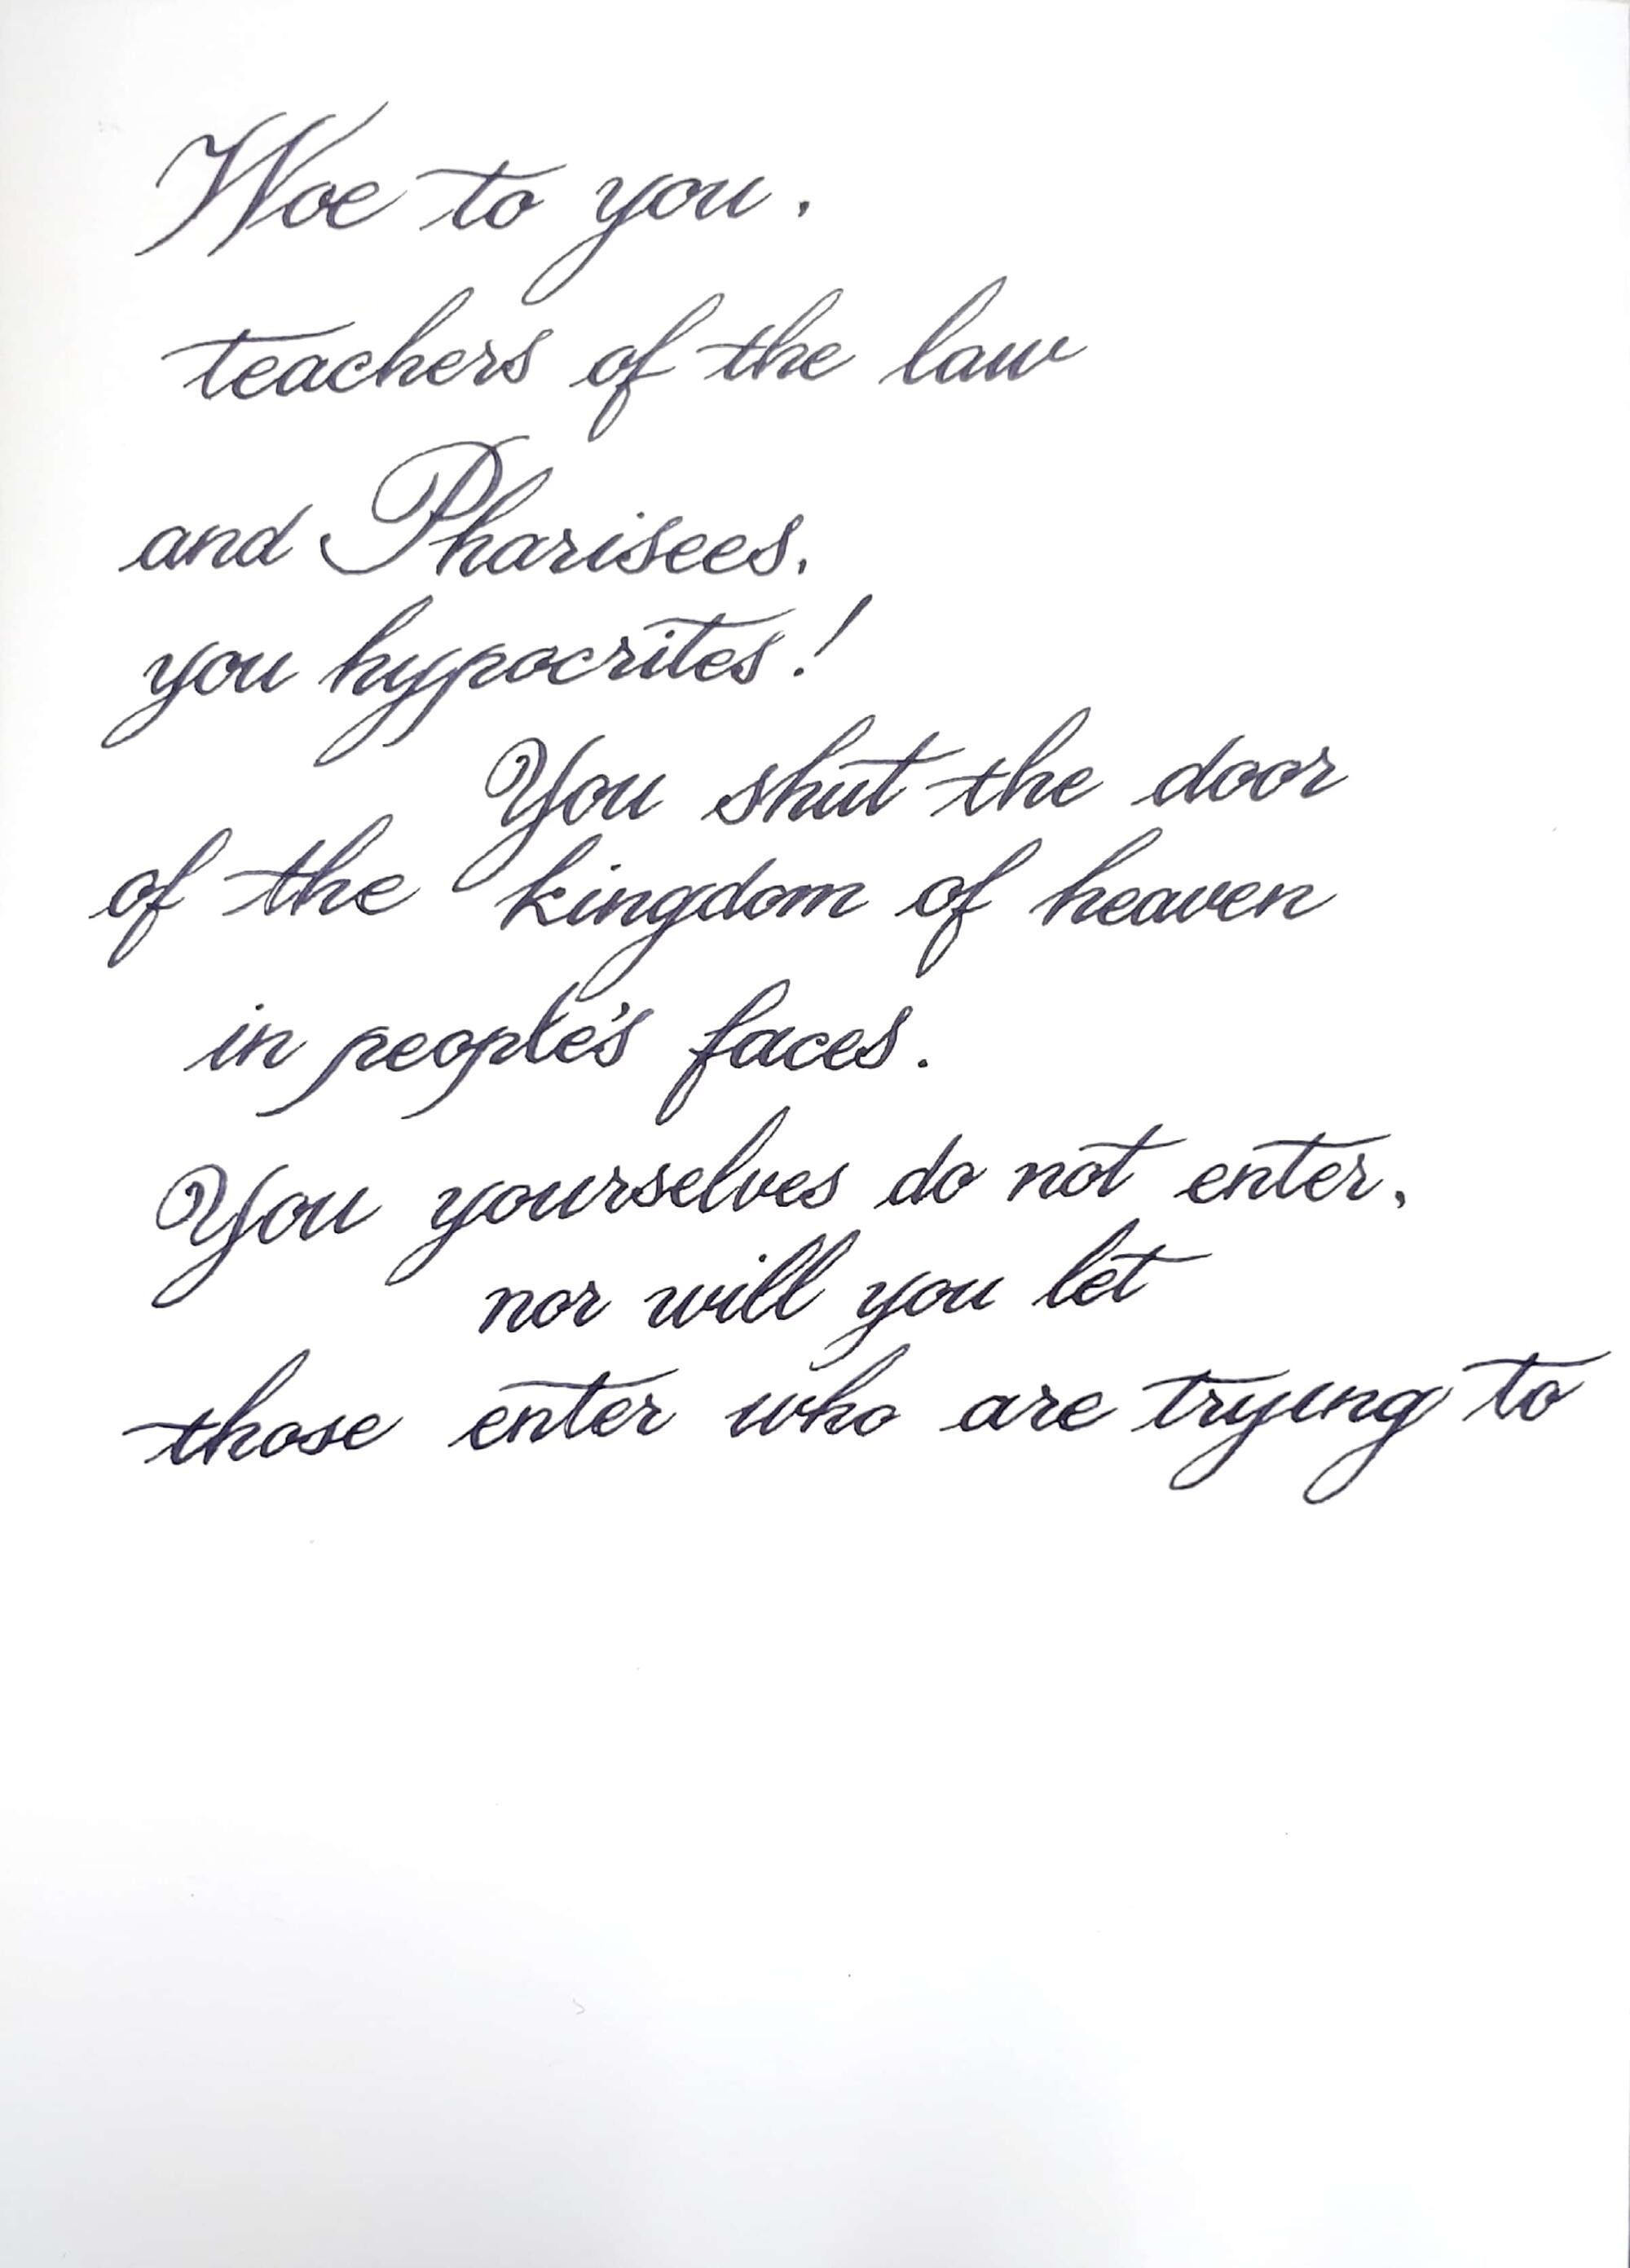 Woe to you,
teachers of the law
and Pharisees,
you hypocrites!
You shut the door
of the kingdom of heaven
in people's faces.
You yourselves do not enter,
nor will you let
those enter who are trying to